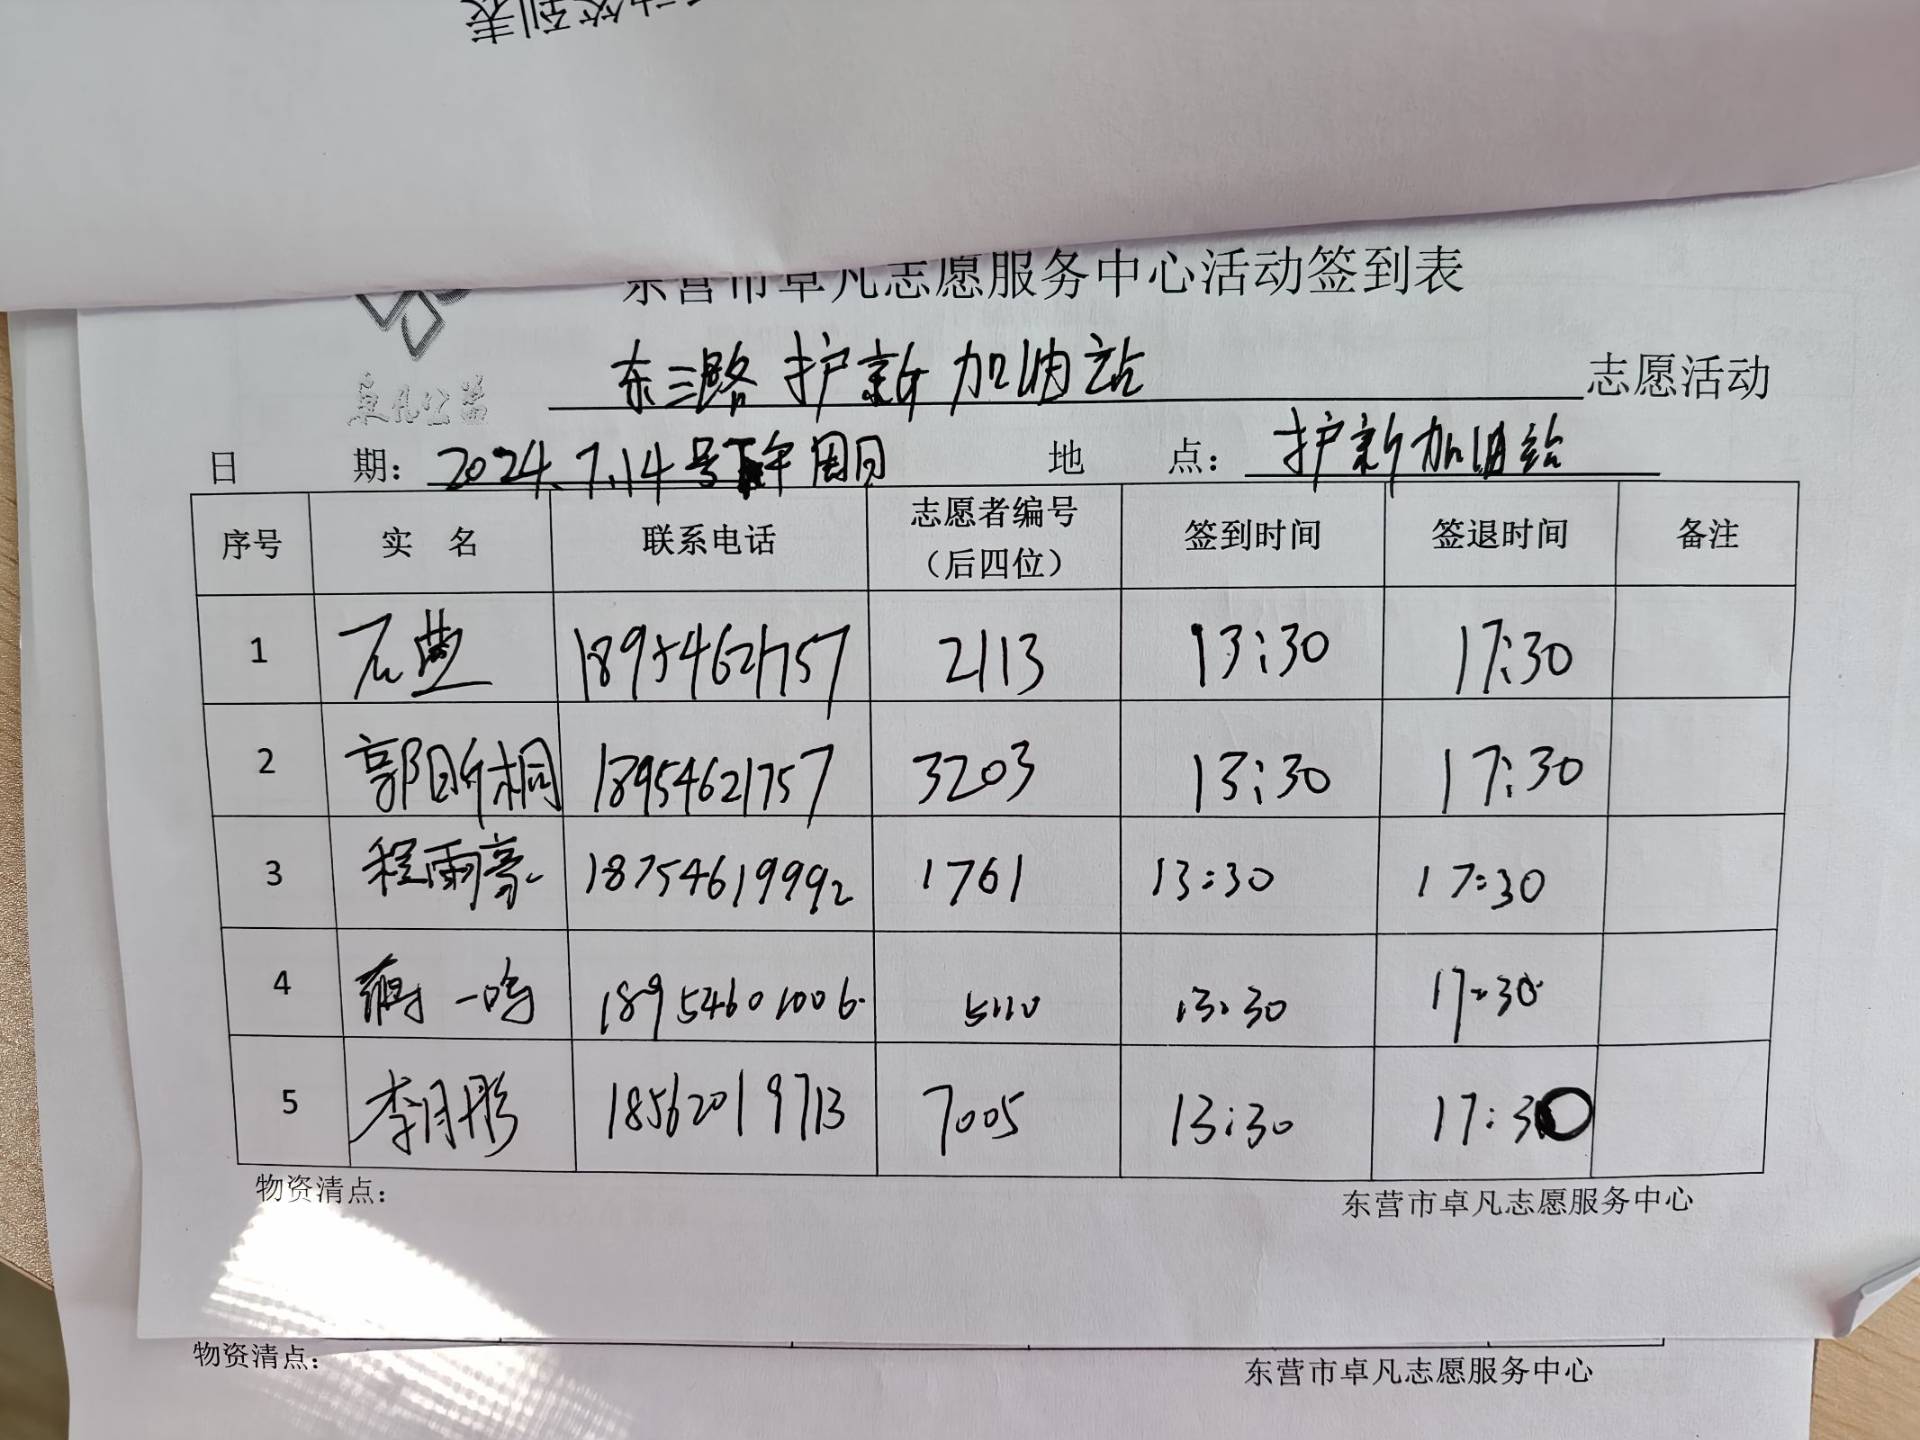 动签到表
东营市卓凡志愿服务中心活动签到表
卓凡公益
东三路护新加油站 志愿活动
日 期: 2024.7.14号下午周日 地 点: 护新加油站
序号 实 名 联系电话 志愿者编号（后四位） 签到时间 签退时间 备注
1 18954621757 2113 13:30 17:30
2 郭昕桐 18954621757 3203 13:30 17:30
3 程雨豪 18754619992 1761 13:30 17:30
4 蒋一鸣 18954601006 5110 13:30 17:30
5 李月彤 18562019713 7005 13:30 17:30
物资清点: 东营市卓凡志愿服务中心
物资清点: 东营市卓凡志愿服务中心